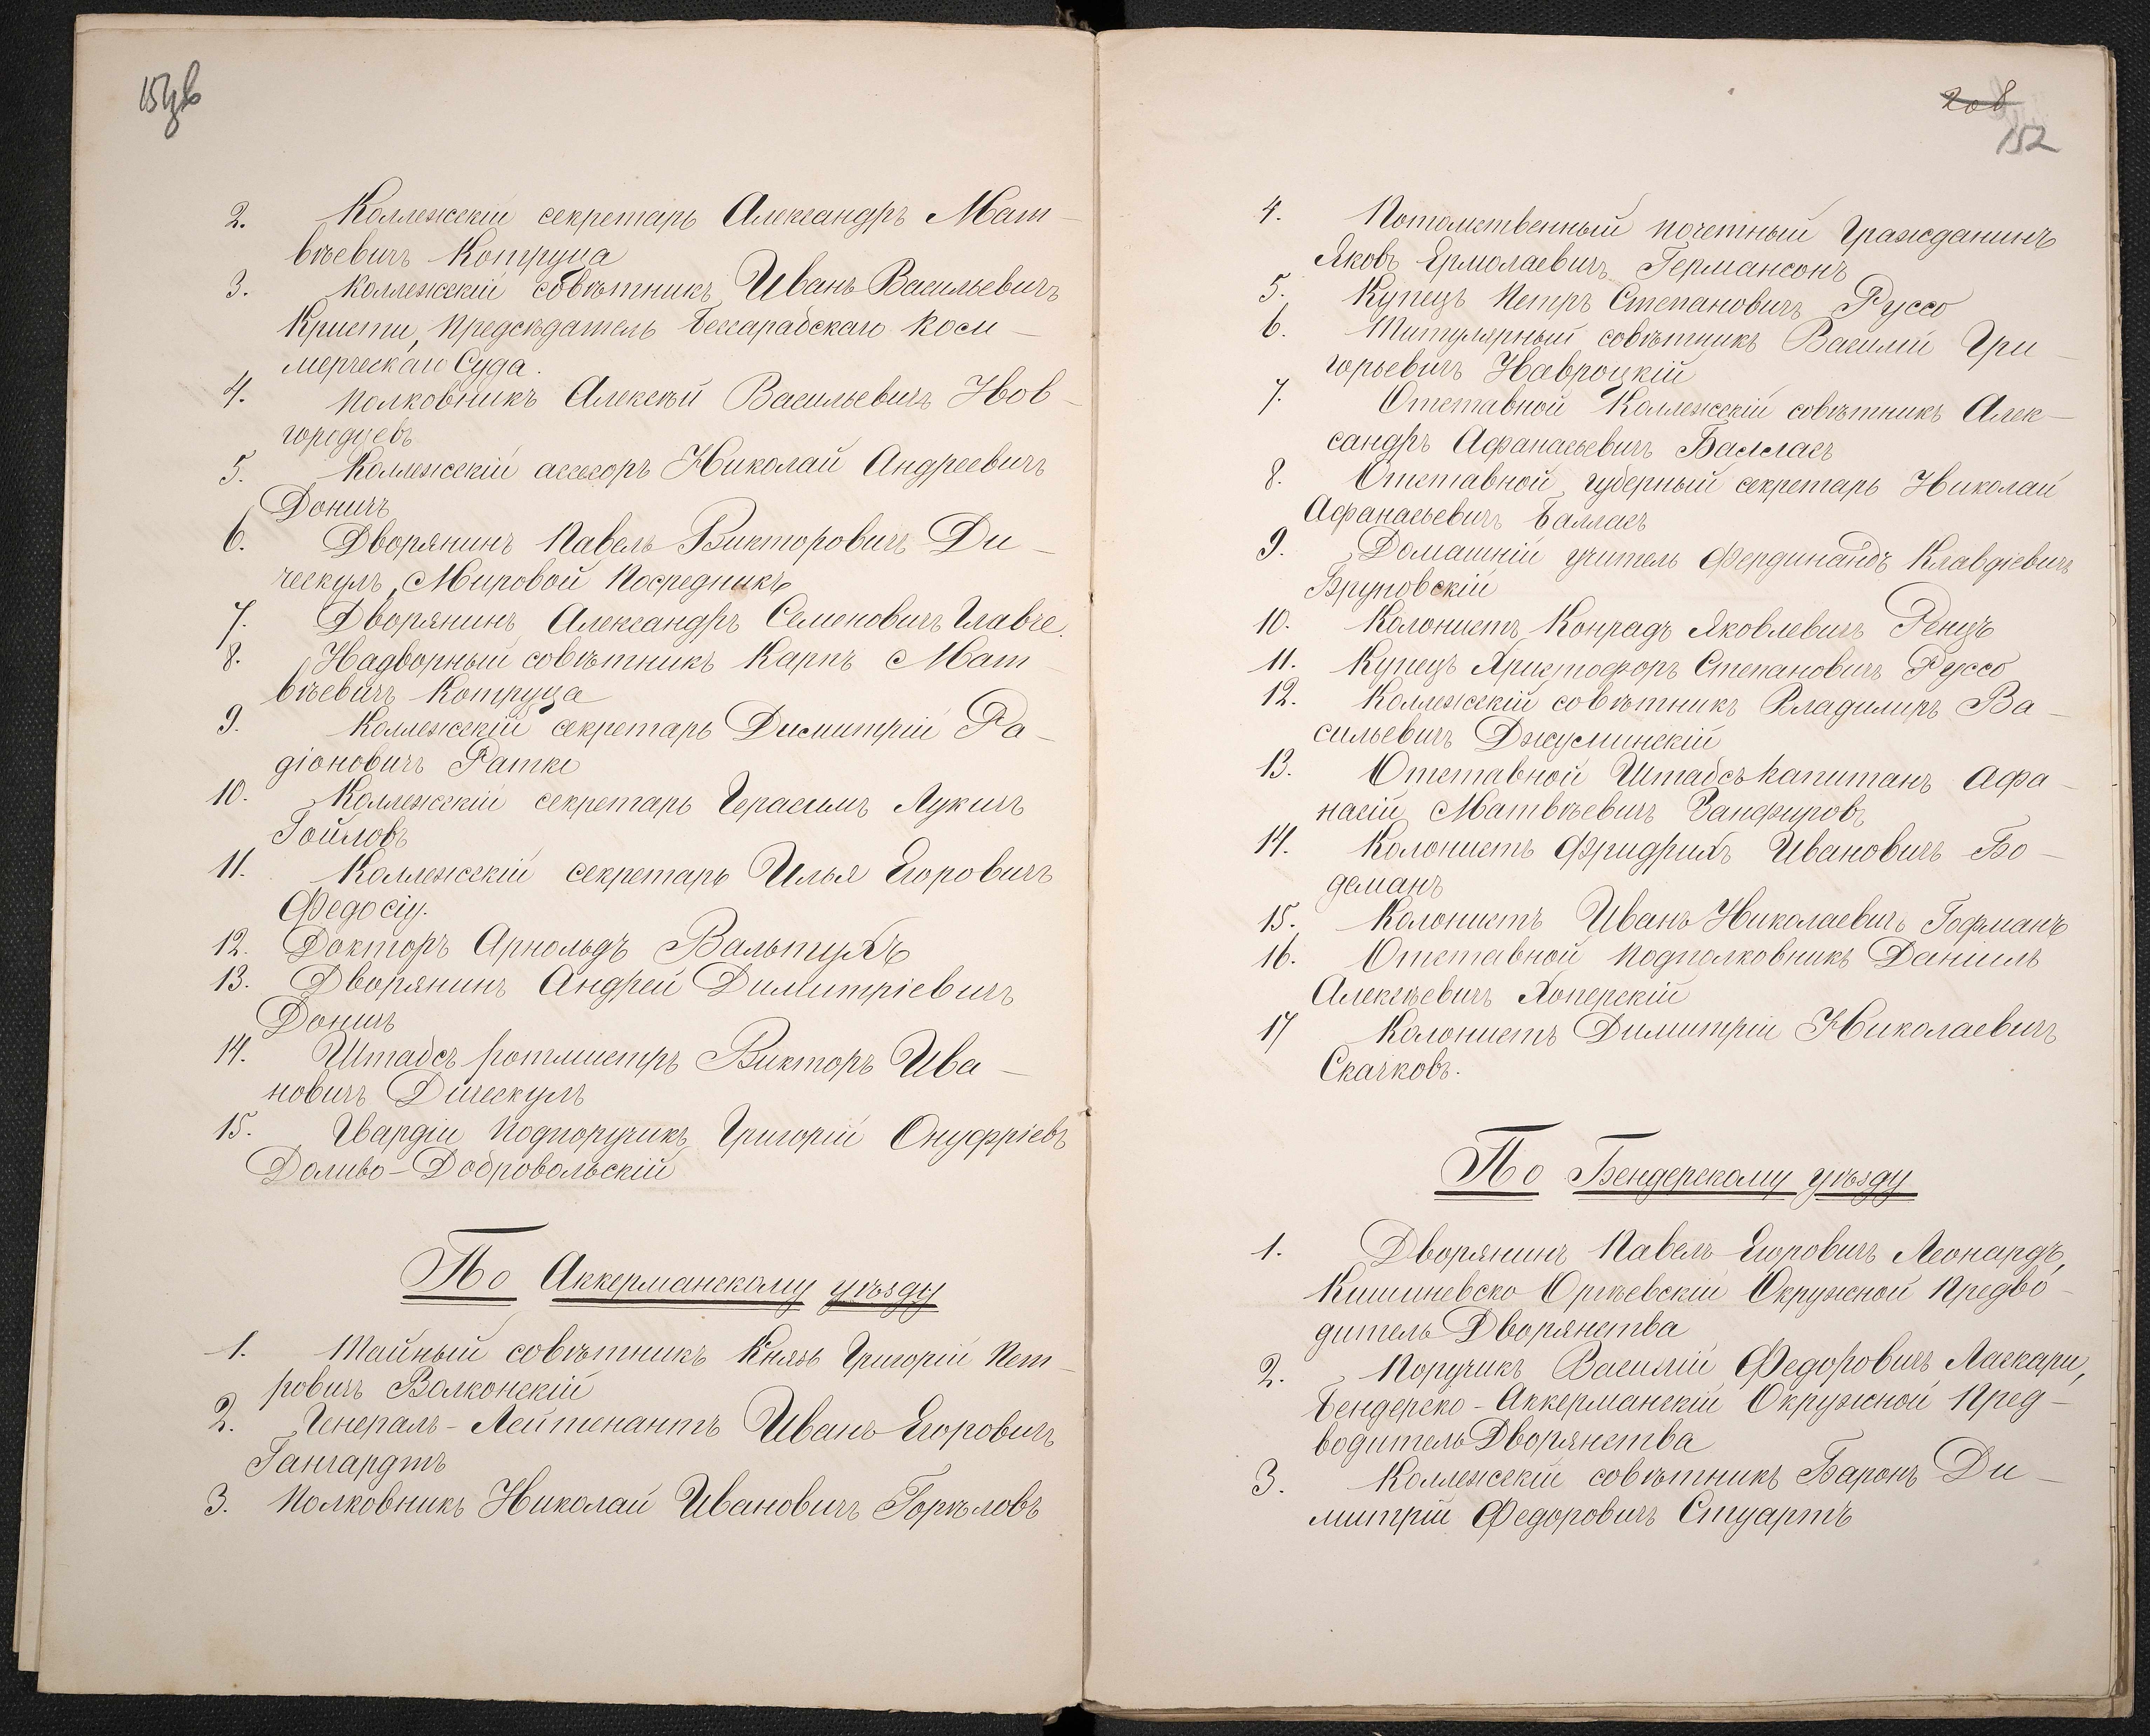 2. Коллежскій секретарь Александръ Мат-
вѣевичъ Котруца
3. Коллежскій совѣтникъ Иванъ Васильевичъ
Кристи, Предсѣдатель Бессарабскаго Ком-
мерческаго Суда.
4. Полковникъ Алексѣй Васильевичъ Нов-
городцевъ
5. Коллежскій ассесоръ Николай Андреевичъ
Доничъ
6. Дворянинъ Павелъ Викторовичъ Ди-
ческулъ, Мировой Посредникъ
7. Дворянинъ Александръ Семеновичъ Главче.
8. Надворный совѣтникъ Карпъ Мат-
вѣевичъ Котруца
9. Коллежскій секретарь Димитрій Ра-
діоновичъ Ратко
10. Коллежскій секретарь Герасимъ Лукичъ
Гойловъ
11. Коллежскій секретарь Илья Егоровичъ
Федосіу.
12. Докторъ Арнольдъ Вальтухъ
13. Дворянинъ Андрей Димитріевичъ
Доничъ
14. Штабсъ ротмистръ Викторъ Ива-
новичъ Дическулъ
15. Гвардіи Подпоручикъ Григорій Онуфріевъ
Доливо-Добровольскій
По Аккерманскому уѣзду
1. Тайный совѣтникъ Князь Григорій Пет-
ровичъ Волконскій
2. Генералъ-Лейтенантъ Иванъ Егоровичъ
Гангардтъ
3. Полковникъ Николай Ивановичъ Горѣловъ
208
152
4. Потомственный почетный Гражданинъ
Яковъ Ермолаевичъ Германсонъ
5. Купецъ Петръ Степановичъ Руссо
6. Титулярный совѣтникъ Василій Гри-
горьевичъ Навроцкій
7. Отставной Коллежскій совѣтникъ Алек-
сандръ Афанасьевичъ Балласъ
8. Отставной губерный секретарь Николай
Афанасьевичъ Балласъ
9. Домашній учитель Фердинандъ Клавдіевичъ
Бруновскій
10. Колонистъ Конрадъ Яковлевичъ Ренцъ
11. Купецъ Христофоръ Степановичъ Руссо
12. Коллежскій совѣтникъ Владимиръ Ва-
сильевичъ Джуминскій
13. Отставной Штабсъ капитанъ Афа-
насій Матвѣевичъ Занфировъ
14. Колонистъ Фридрихъ Ивановичъ Бо-
деманъ
15. Колонистъ Иванъ Николаевичъ Гофманъ
16. Отставной Подполковникъ Даніилъ
Алексѣевичъ Хоперскій
17 Колонистъ Димитрій Николаевичъ
Скачковъ.
По Бендерскому уѣзду
1. Дворянинъ Павелъ Егоровичъ Леонардъ,
Кишиневско Оргѣевскій Окружной Предво-
дитель Дворянства
2. Поручикъ Василій Федоровичъ Ласкари,
Бендерско-Аккерманскій Окружной Пред-
водитель Дворянства
3. Коллежскій совѣтникъ Баронъ Ди-
митрій Федоровичъ Стуартъ